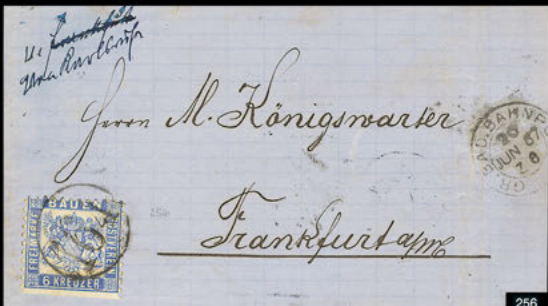 Karlsruhe
Herrn M. Königswarter
Frankfurt a/M
GR. BAD. BAHNP
26
JUN 67
Z 8
BADEN
FREIMARKE
POSTVEREIN
6 KREUZER
256